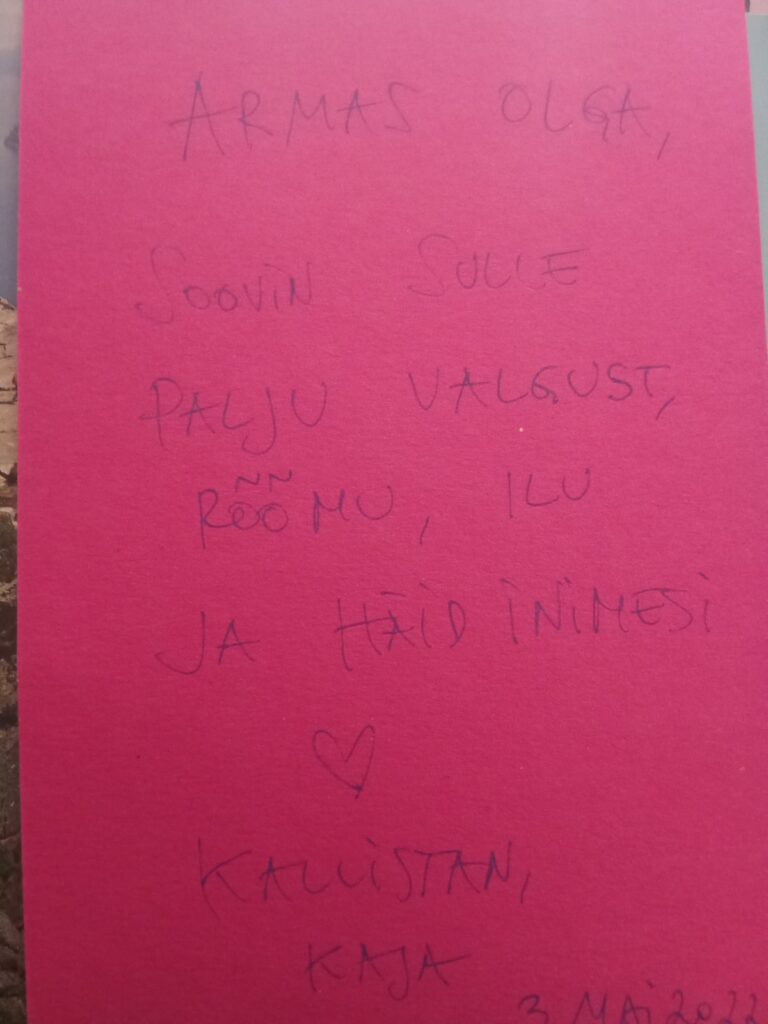 ARMAS OLGA,
SOOVIN SULLE
PALJU VALGUST,
RÕÕMU, ILU
JA HÄID INIMESI
♡
KALLISTAN,
KAJA
3. MAI 2022